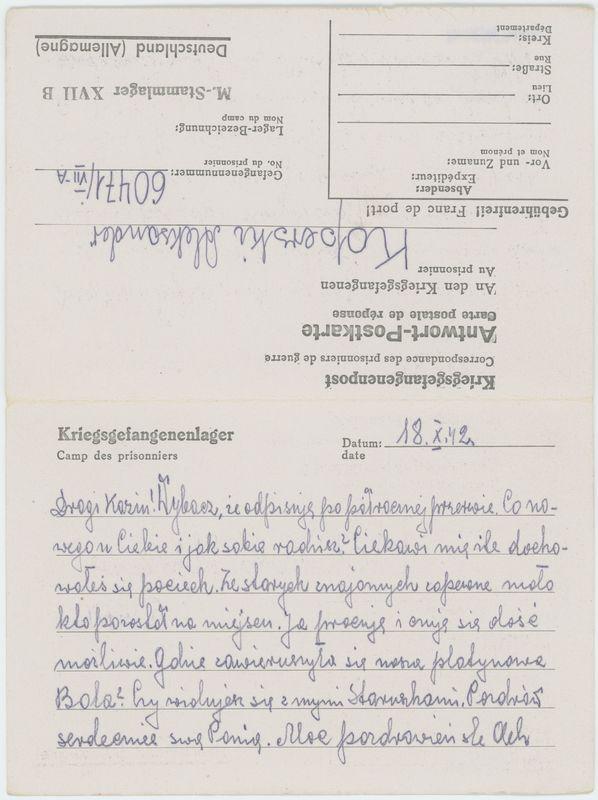 Deutschland (Allemagne)
M.-Stammlager XVII B
Lager-Bezeichnung:
Nom du camp
Gefangenennummer: 60471/VII-A
No. du prisonnier
Koperski Aleksander
Au prisonnier
An den Kriegsgefangenen
Carte postale de réponse
Antwort-Postkarte
Correspondance des prisonniers de guerre
Kriegsgefangenpost
Kreis:
Département
Straße:
Rue
Ort:
Lieu
Vor- und Zuname:
Nom et prénom
Expéditeur:
Absender:
Gebührenfrei! Franc de port!
Kriegsgefangenenlager
Camp des prisonniers
Datum: 18.X.42.
date
Drogi Kaziu! Wybacz, że odpisuję po półrocznej przerwie. Co no-
wego u Ciebie i jak sobie radzisz? Ciekawi mię ile docho-
wałeś się pociech. Ze starych znajomych zapewne mało
kto pozostał na miejscu. Ja pracuję i czuję się dość
możliwie. Gdzie zawieruszyła się nasza platynowa
Bala? Czy widujesz się z mymi Staruszkami. Pozdrów
serdecznie swą Panią. Moc pozdrowień śle Olek